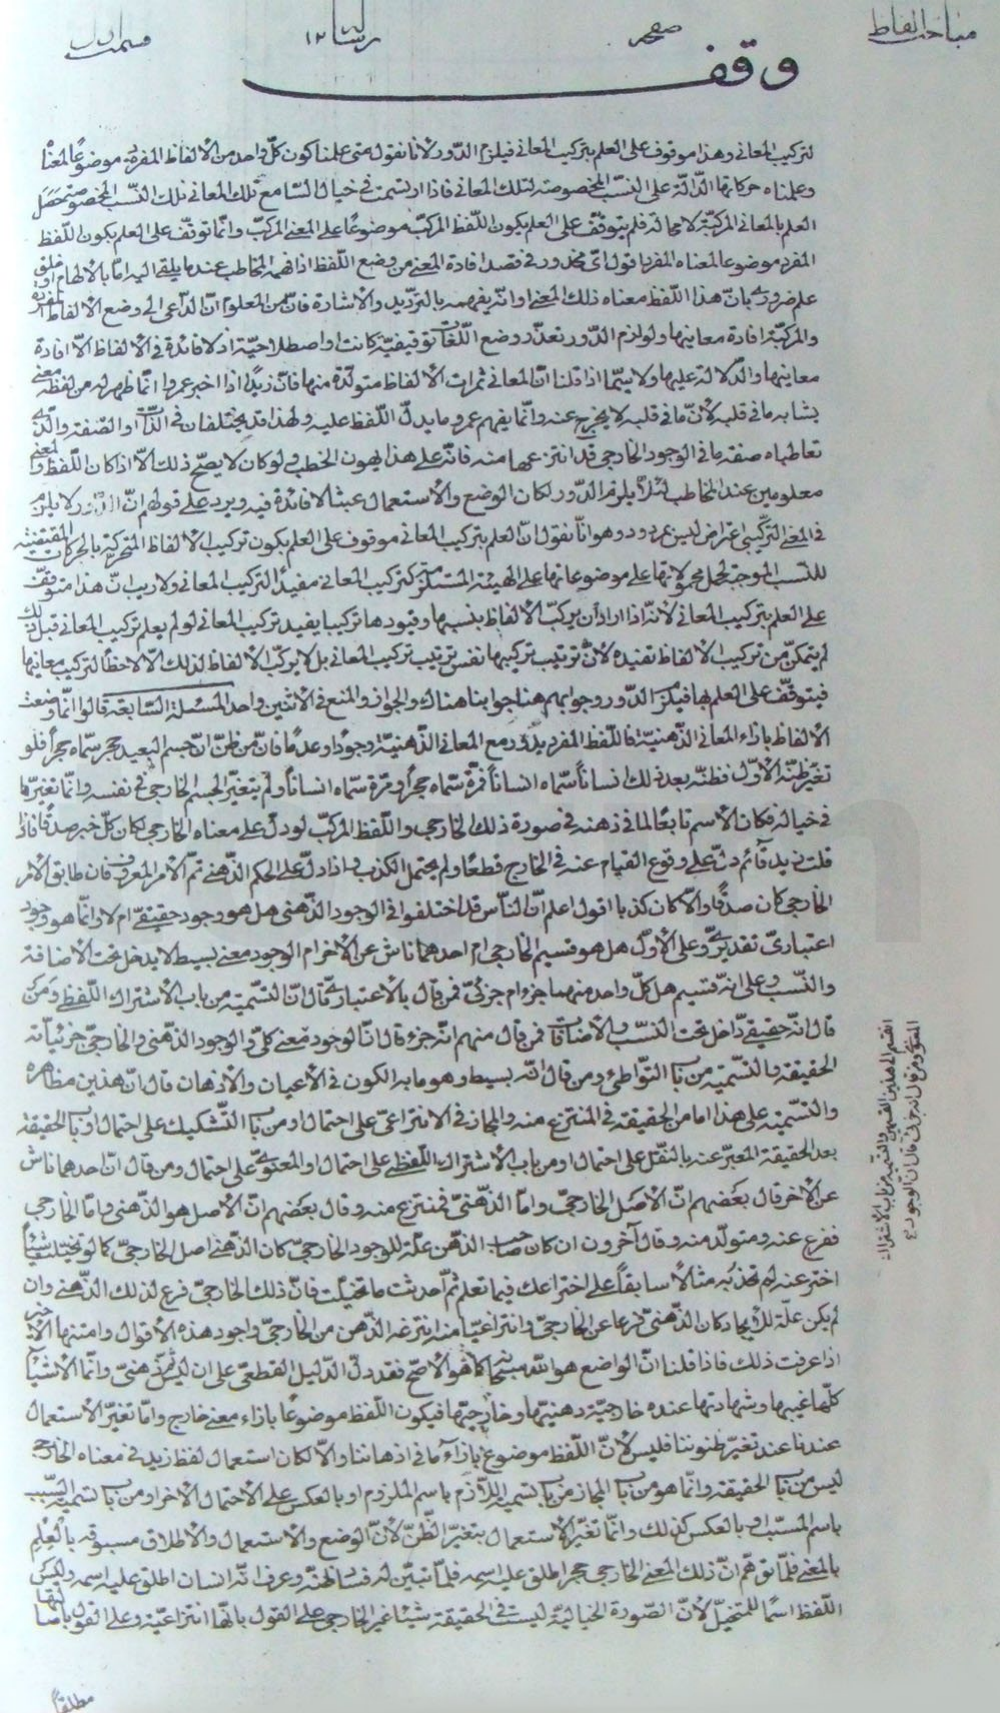 مباحث الفاظ
صفحه
رسالة ١٢
قسمت اول
وقف
لتركيب المعاني وهذا موقوف على العلم بتركيب المعاني فيلزم الدّور لانا نقول متى علمنا كون كلّ واحد من الألفاظ المفردة موضوعًا لمعناه
وعلمناه حركاتها الدّالّة على النّسب المخصوصة لتلك المعاني فاذا ارتسمت في خيال السّامع تلك المعاني تلك النّسب المخصوصة حَصَل
العلم بالمعاني المركّبة لا محالة فلم يتوقّف على العلم بكون اللّفظ المركّب موضوعًا على المعنى المركّب وانّما توقّف على العلم بكون اللّفظ
المفرد موضوعا لمعناه المفرد اقول اىّ محذور في قصد افادة المعنى من وضع اللّفظ اذا فهمه المخاطب عند ما يلقى اليه امّا بالالهام او خلق
علم ضروريّ بانّ هذا اللّفظ معناه ذلك المعنى او انّه يفهمه بالترديد والاشارة فانّ من المعلوم انّ الدّاعى الى وضع الالفاظ المفردة
والمركّبة افادة معانيها ولو لزم الدّور تعذّر وضع اللّغات توقيفيّة كانت او اصطلاحيّة اذ لا فائدة في الالفاظ الّا افادة
معانيها والدّلالة عليها ولا سيّما اذا قلنا انّ المعاني ثمرات الالفاظ متولّدة منها فانّ زيدًا اذا اخبر عمروا انّما ظهر له من لفظه معنى
يشابه ما في قلبه لانّ ما في قلبه لا يخرج عنه وانّما يفهم عمرو ما يدلّ اللّفظ عليه ولهذا قد يختلفان في الذّات او الصّفة والّذى
تعاطياه صفة ما في الوجود الخارجى قد انتزعها منه فانّه على هذا يهون الخطب ولو كان لا يصحّ ذلك الّا اذا كان اللّفظ والمعنى
معلومين عند المخاطب لئلّا يلزم الدّور لكان الوضع والاستعمال عبثا لا فائدة فيه ويرد على قولهم انّ الدّور لا يلزم
في المعنى التركيبى اعتراض ليس بمردود وهو انّا نقول انّ العلم بتركيب المعاني موقوف على العلم بكون تركيب الالفاظ المتحركة بالحركات المقتضية
للنسب الموجبة لحمل محمولاتها على موضوعاتها على الهيئة المستلزمة لتركيب المعاني مفيدًا لتركيب المعاني ولا ريب انّ هذا متوقّف
على العلم بتركيب المعاني لانّه اذا اراد أن يركّب الالفاظ بنسبها وقيودها تركيبا يفيد تركيب المعاني لو لم يعلم تركيب المعاني قبل ذلك
لم يتمكّن من تركيب الالفاظ تفيده لانّ ترتيب تركيبها نفس ترتيب تركيب المعاني بل لا يركّب الالفاظ لذلك الّا لاحظًا لتركيب معانيها
فيتوقّف على العلم بها فيلزم الدّور وجوابهم هنا جوابنا هناك والجواز والمنع في الاثنين واحد المسئلة السّابعة قالوا انّما وضعت
الألفاظ بازاء المعاني الذّهنيّة فاللّفظ المفرد يدور مع المعاني الذّهنية وجودًا وعدمًا فانّ من ظنّ انّ جسم البعيد حجر سمّاه حجرًا فلو
تغيّر ظنّه الاوّل فظنّه بعد ذلك انسانًا سمّاه انسانًا فمرّة سمّاه حجرًا ومرّة سمّاه انسانًا ولم يتغيّر الجسم الخارجى في نفسه وانّما تغيّر ما
في خياله فكان الأسم تابعًا لما في ذهنه في صورة ذلك الخارجى واللّفظ المركّب لو دلّ على معناه الخارجى لكان كلّ خبر صدقًا فاذا
قلت زيد قائم دلّ على وقوع القيام عنه في الخارج قطعًا ولم يحتمل الكذب واذا دلّ على الحكم الذّهني تمّ الأمر المعروف فان طابق الامر
الخارجى كان صدقًا والّا كان كذبا اقول اعلم انّ النّاس قد اختلفوا في الوجود الذّهنى هل هو وجود حقيقىّ ام لا وانّما هو وجود
اعتبارىّ تقديرىّ وعلى الاوّل هل هو قسيم الخارجى ام احدهما ناش عن الاخر ام الوجود معنى بسيط لا يدخل تحت الاضافة
والنّسب وعلى انّه قسيم هل كلّ واحد منهما جزء ام جزئىّ فمن قال بالاعتبارىّ قال انّ التّسمية من باب الاشتراك اللّفظى ومن
قال انّه حقيقىّ داخل تحت النّسب والاضافات فمن قال منهم انّه جزء قال انّ الوجود معنى كلّىّ والوجود الذّهنى والخارجىّ جزئيّاته
الحقيقة والتّسمية من باب التّواطئ ومن قال انّه بسيط وهو ما به الكون في الاعيان والاذهان قال انّ هذين مظاهره
والتّسمية على هذا اما من الحقيقة في المنتزع منه والمجاز في الانتزاعىّ على احتمال او من باب التّشكيك على احتمال او باب الحقيقة
بعد الحقيقة المعبّر عنه بالنّقل على احتمال او من باب الاشتراك اللّفظى على احتمال او المعنوىّ على احتمال ومن قال انّ احدهما ناش
عن الاخر قال بعضهم انّ الأصل الخارجىّ وامّا الذّهنىّ فمنتزع منه وقال بعضهم انّ الأصل هو الذّهنى وامّا الخارجى
ففرع عنه ومتولّد منه وقال آخرون ان كان صاحب الذّهن علّة للوجود الخارجىّ كان الذّهنى اصل الخارجىّ كما لو تخيّلت شيئًا
اخترعته لم تحذ به مثالًا سابقًا على اختراعك فيما تعلم ثمّ احدثت ما تخيّلت فانّ ذلك الخارجىّ فرع لذلك الذّهنى وان
لم يكن علّة لذلك الايجاد كان الذّهنىّ فرعا عن الخارجىّ وانتزاعيّا منه انتزعه الذّهن من الخارجىّ واجود هذه الأقوال وامتنها الاخير
اذا عرفت ذلك فاذا قلنا انّ الواضع هو اللّه سبحانه كما هو الاصحّ فقد دلّ الدّليل القطعىّ على ان ليس ثمّ ذهنىّ وانّما الاشيآء
كلّها غيبها وشهادتها عنده خارجيّة ذهنيّها وخارجيّها فيكون اللّفظ موضوعًا بازاء معنى خارج وامّا تغيّر الاستعمال
عندنا عند تغيّر ظنوننا فليس لانّ اللّفظ موضوع بازآء ما في اذهاننا والّا لكان استعمال لفظ زيد في معناه الخارجى
ليس من باب الحقيقة وانّما هو من باب المجاز من باب تسمية اللّازم باسم الملزوم او بالعكس على الاحتمال الاخر او من باب تسمية السّبب
باسم المسبّب او بالعكس كذلك وانّما تغيّر الاستعمال بتغيّر الظّنّ لانّ الوضع والاستعمال والاطلاق مسبوقة بالعلم
بالمعنى فلمّا توهّم انّ ذلك المعنى الخارجى حجر اطلق عليه اسمه فلمّا تبيّن له فساد ظنّه وعرف انّه انسان اطلق عليه اسمه وليس
اللّفظ اسمًا للمتخيّل لانّ الصّورة الخياليّة ليست في الحقيقة شيئا غير الخارجى على القول بانّها انتزاعيّة وعلى القول باصالتها
مطلقًا